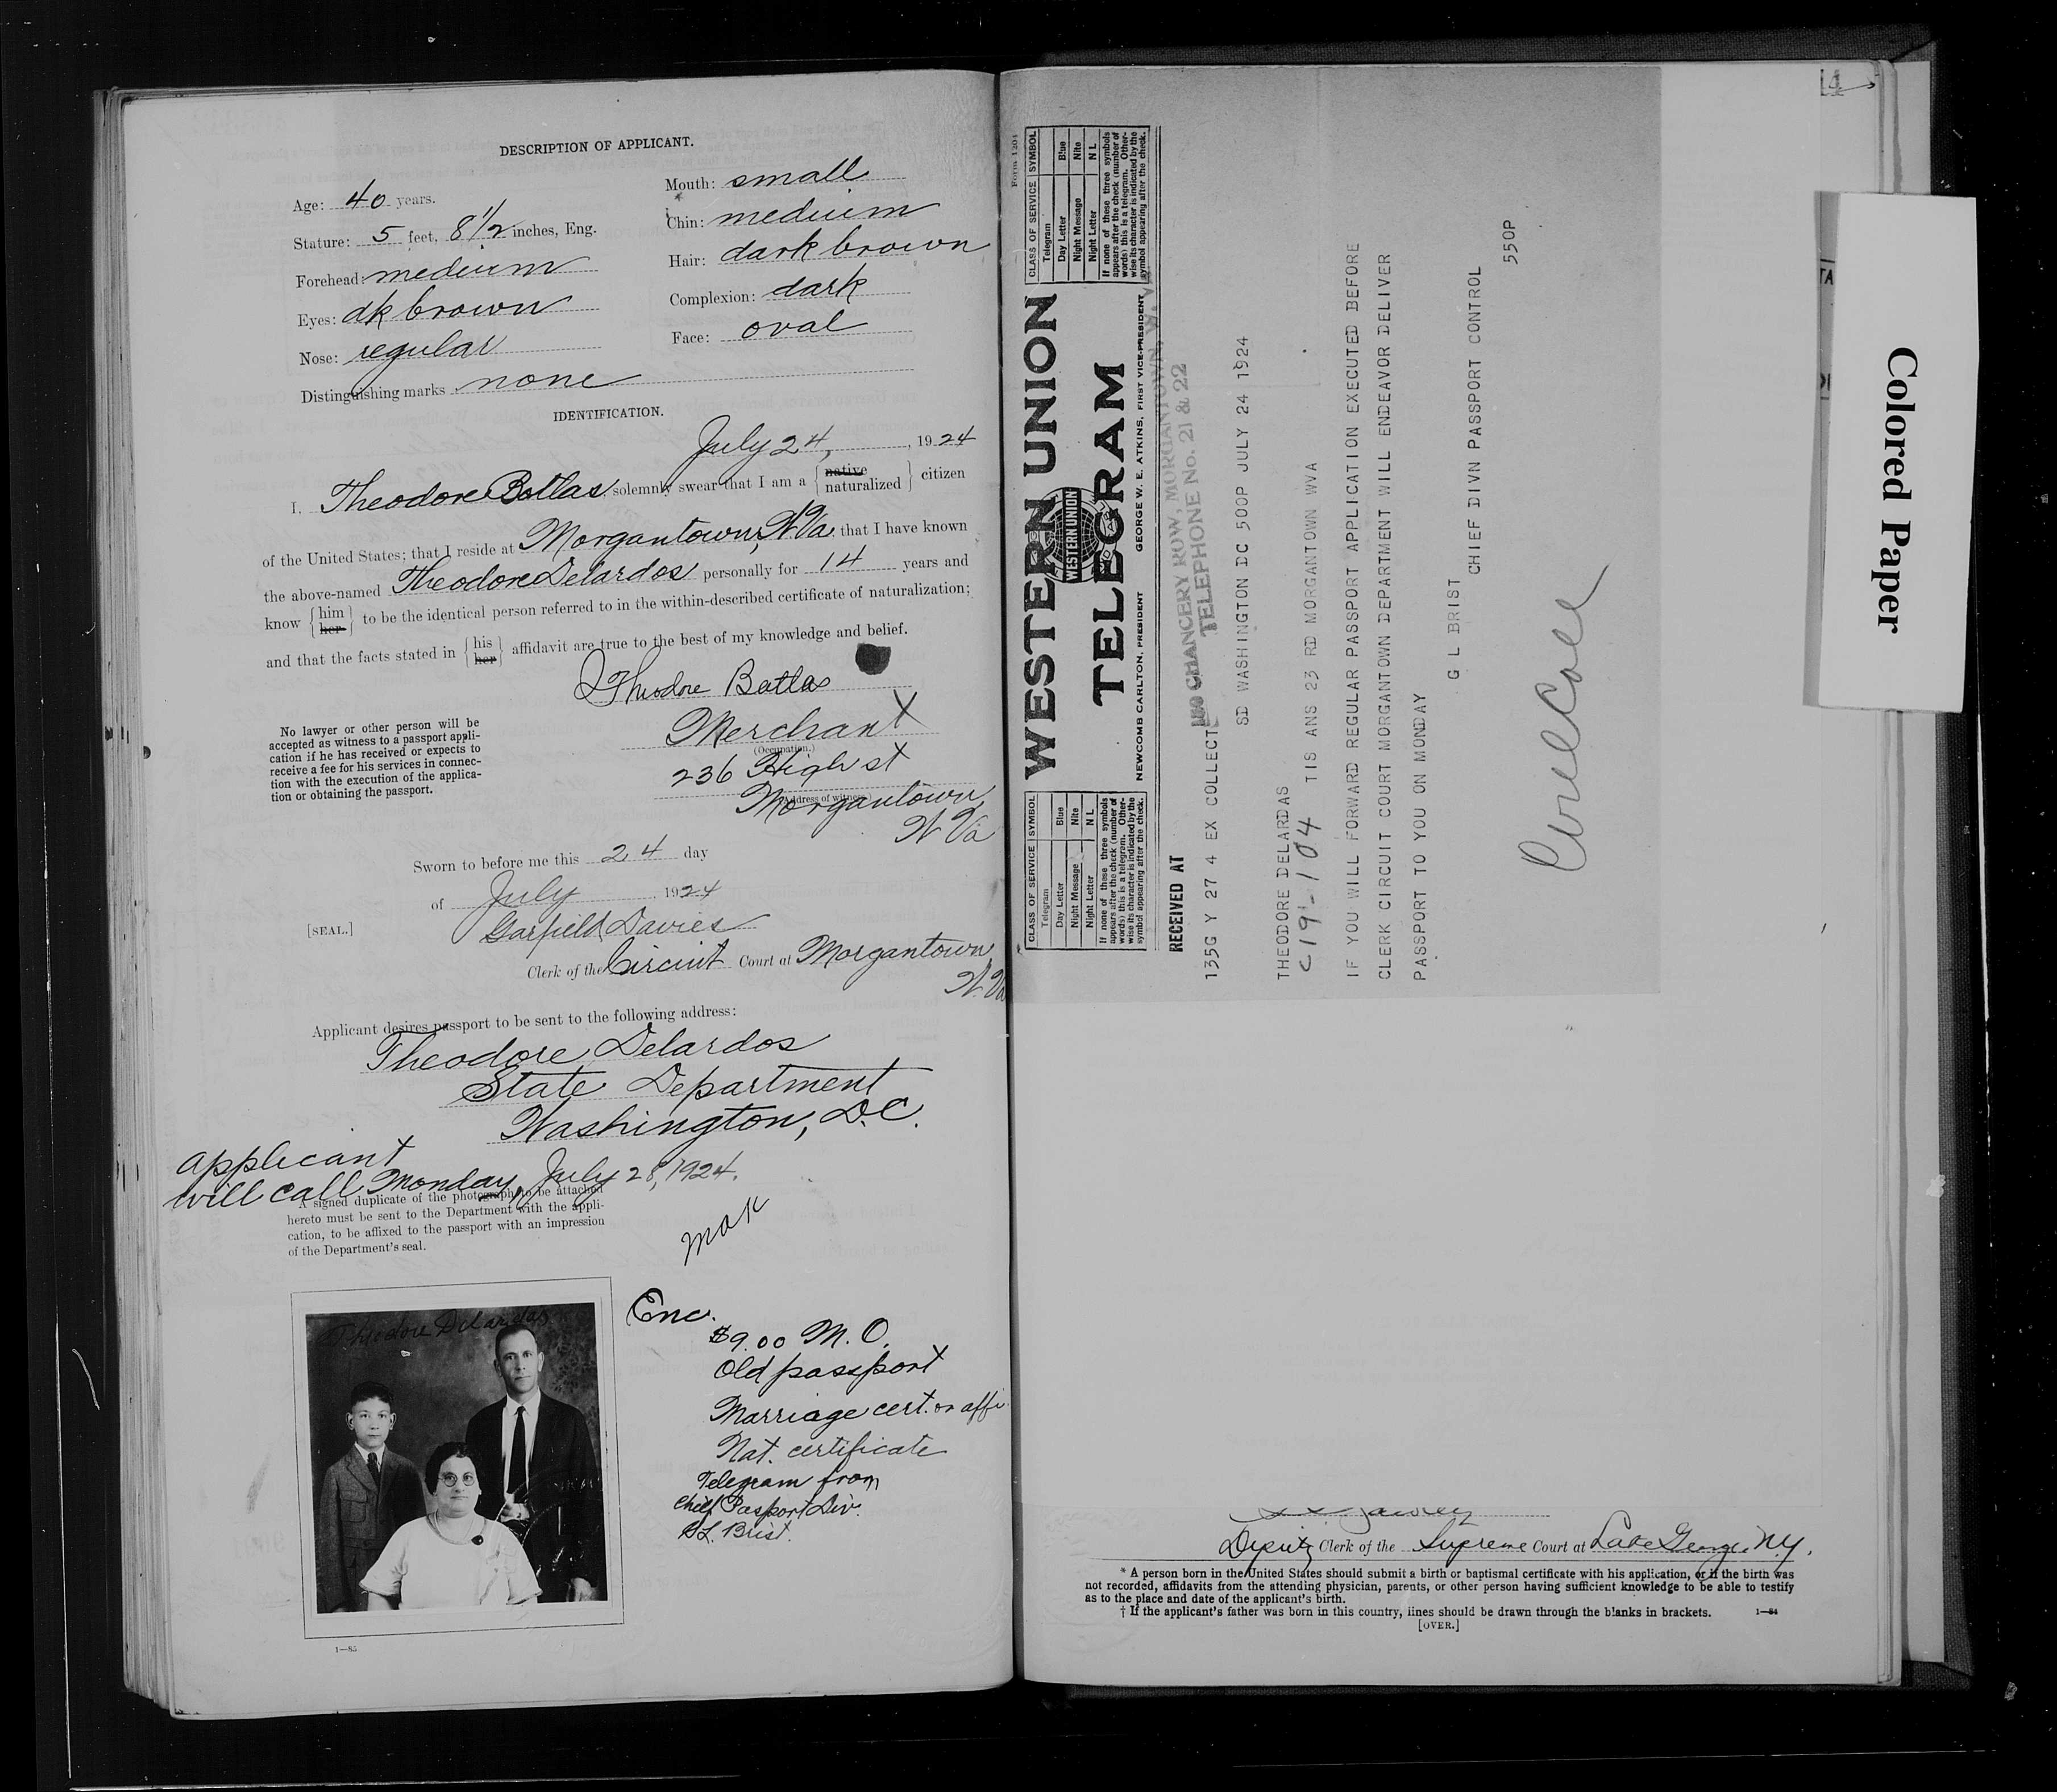 DESCRIPTION OF APPLICANT.
Age: 40 years.
Stature: 5 feet, 8 1/2 inches, Eng.
Forehead: medium
Eyes: dk brown
Nose: regular
Distinguishing marks none
Mouth: small
Chin: medium
Hair: dark brown
Complexion: dark
Face: oval
IDENTIFICATION.
July 24, 1924
I, Theodore Batlas, solemnly swear that I am a {native naturalized} citizen
of the United States; that I reside at Morgantown, W. Va that I have known
the above-named Theodore Delardos personally for 14 years and
know {him her} to be the identical person referred to in the within-described certificate of naturalization;
and that the facts stated in {his her} affidavit are true to the best of my knowledge and belief.
Theodore Batlas
Merchant
(Occupation.)
236 High st
(Address of witness.)
Morgantown,
W Va
No lawyer or other person will be
accepted as witness to a passport appli-
cation if he has received or expects to
receive a fee for his services in connec-
tion with the execution of the applica-
tion or obtaining the passport.
Sworn to before me this 24 day
of July, 1924
[SEAL.]
Garfield Davies
Clerk of the Circuit Court at Morgantown
W. Va
Applicant desires passport to be sent to the following address:
Theodore Delardos
State Department
Washington, D.C.
applicant
will call Monday, July 28, 1924.
A signed duplicate of the photograph to be attached
hereto must be sent to the Department with the appli-
cation, to be affixed to the passport with an impression
of the Department's seal.
Theodore Delardas
Enc.
$9.00 M.O.
Old passport
Marriage cert. or affi
Nat. certificate
Telegram from
Chief Passport Div.
G.L. Brist.
1—85
Form 1204
CLASS OF SERVICE SYMBOL
Telegram
Day Letter Blue
Night Message Nite
Night Letter N L
If none of these three symbols
appears after the check (number of
words) this is a telegram. Other-
wise its character is indicated by the
symbol appearing after the check.
WESTERN UNION
TELEGRAM
WESTERN UNION
NEWCOMB CARLTON, PRESIDENT
GEORGE W. E. ATKINS, FIRST VICE-PRESIDENT
CLASS OF SERVICE SYMBOL
Telegram
Day Letter Blue
Night Message Nite
Night Letter N L
If none of these three symbols
appears after the check (number of
words) this is a telegram. Other-
wise its character is indicated by the
symbol appearing after the check.
RECEIVED AT
CHANCERY ROW, MORGANTOWN, W. VA.
TELEPHONE No. 21 & 22
135G Y 27 4 EX COLLECT
SD WASHINGTON DC 500P JULY 24 1924
THEODORE DELARDAS
C 19'-104 TIS ANS 23 RD MORGANTOWN WVA
IF YOU WILL FORWARD REGULAR PASSPORT APPLICATION EXECUTED BEFORE
CLERK CIRCUIT COURT MORGANTOWN DEPARTMENT WILL ENDEAVOR DELIVER
PASSPORT TO YOU ON MONDAY
G L BRIST
CHIEF DIVN PASSPORT CONTROL
550P
Colored Paper
Deputy Clerk of the Supreme Court at Lake George, N.Y.
* A person born in the United States should submit a birth or baptismal certificate with his application, or if the birth was
not recorded, affidavits from the attending physician, parents, or other person having sufficient knowledge to be able to testify
as to the place and date of the applicant's birth.
† If the applicant's father was born in this country, lines should be drawn through the blanks in brackets. 1—84
[OVER.]